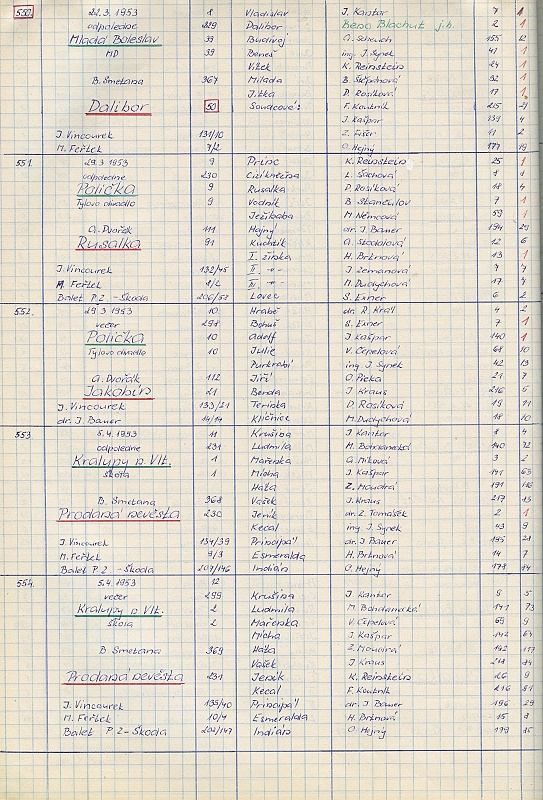 550 22.3.1953 8 Vladislav J. Kantor 7 1
odpoledne 229 Dalibor Beno Blachut j.h. 2 1
Mladá Boleslav 39 Budivoj 155 12
MD 39 Beneš ing. J. Synek 41 1
Vítek K. Reinstein 24 1
B. Smetana 367 Milada B. Štěpánová 32 1
Jitka D. Rosíková 17 1
Dalibor 50 Soudcové: F. Koutník 215
J. Kašpar 139 4
J. Vincourek 131/10 Z. Fišer 11 2
M. Feřtek 7/2 O. Hejný 177 19
551. 29.3.1953 9 Princ K. Reinstein 25 1
odpoledne 230 Cizí kněžna L. Šachová 8 1
Polička 9 Rusalka D. Rosíková 18 4
Tylovo divadlo 9 Vodník B. Stančulov 7 1
Ježibaba M. Němcová 59 1
A. Dvořák 111 Hajný dr. J. Bauer 194 29
Rusalka 91 Kuchtík A. Stodolová 12 6
I. žínka H. Brknová 13 1
J. Vincourek 132/45 II. -"- J. Zemanová 7 4
M. Feřtek 8/2 III. -"- M. Dudychová 17 4
Balet P.Z. - Škoda 206/53 Lovec S. Exner 6 2
552. 29.3.1953 10 Hrabě dr. R. Král 4 2
večer 298 Bohuš S. Exner 7 1
Polička 10 Adolf J. Kašpar 140 1
Tylovo divadlo 10 Julie V. Čepelová 68 10
Purkrabí ing. J. Synek 42 13
A. Dvořák 112 Jiří O. Pieka 21 7
Jakobín 21 Benda J. Kraus 216 6
J. Vincourek 133/21 Terinka D. Rosíková 19 11
dr. J. Bauer 14/14 Klíčnice M. Dudychová 18 10
553 5.4.1953 11 Krušina J. Kantor 8 4
odpoledne 231 Ludmila M. Bohdanecká 140 72
Kralupy n. Vlt. 1 Mařenka G. Milová 3 2
škola 1 Mícha J. Kašpar 141 63
Háta Z. Moudrá 191 116
B. Smetana 368 Vašek J. Kraus 217 13
Prodaná nevěsta 230 Jeník dr. Z. Tomášek 2 1
Kecal ing. J. Synek 43 9
J. Vincourek 134/39 Principál dr. J. Bauer 195 28
M. Feřtek 9/3 Esmeralda H. Brknová 14 7
Balet P.Z. - Škoda 207/146 Indián O. Hejný 178 14
554. 5.4.1953 12
večer 299 Krušina J. Kantor 9 5
Kralupy n. Vlt. 2 Ludmila M. Bohdanecká 141 73
škola 2 Mařenka V. Čepelová 69 9
Mícha J. Kašpar 142 64
B. Smetana 369 Háta Z. Moudrá 192 117
Vašek J. Kraus 218 14
Prodaná nevěsta 231 Jeník K. Reinstein 26 9
Kecal F. Koutník 216 81
J. Vincourek 135/40 Principál dr. J. Bauer 196 29
M. Feřtek 10/4 Esmeralda H. Brknová 15 8
Balet P.Z. - Škoda 208/147 Indián O. Hejný 179 15